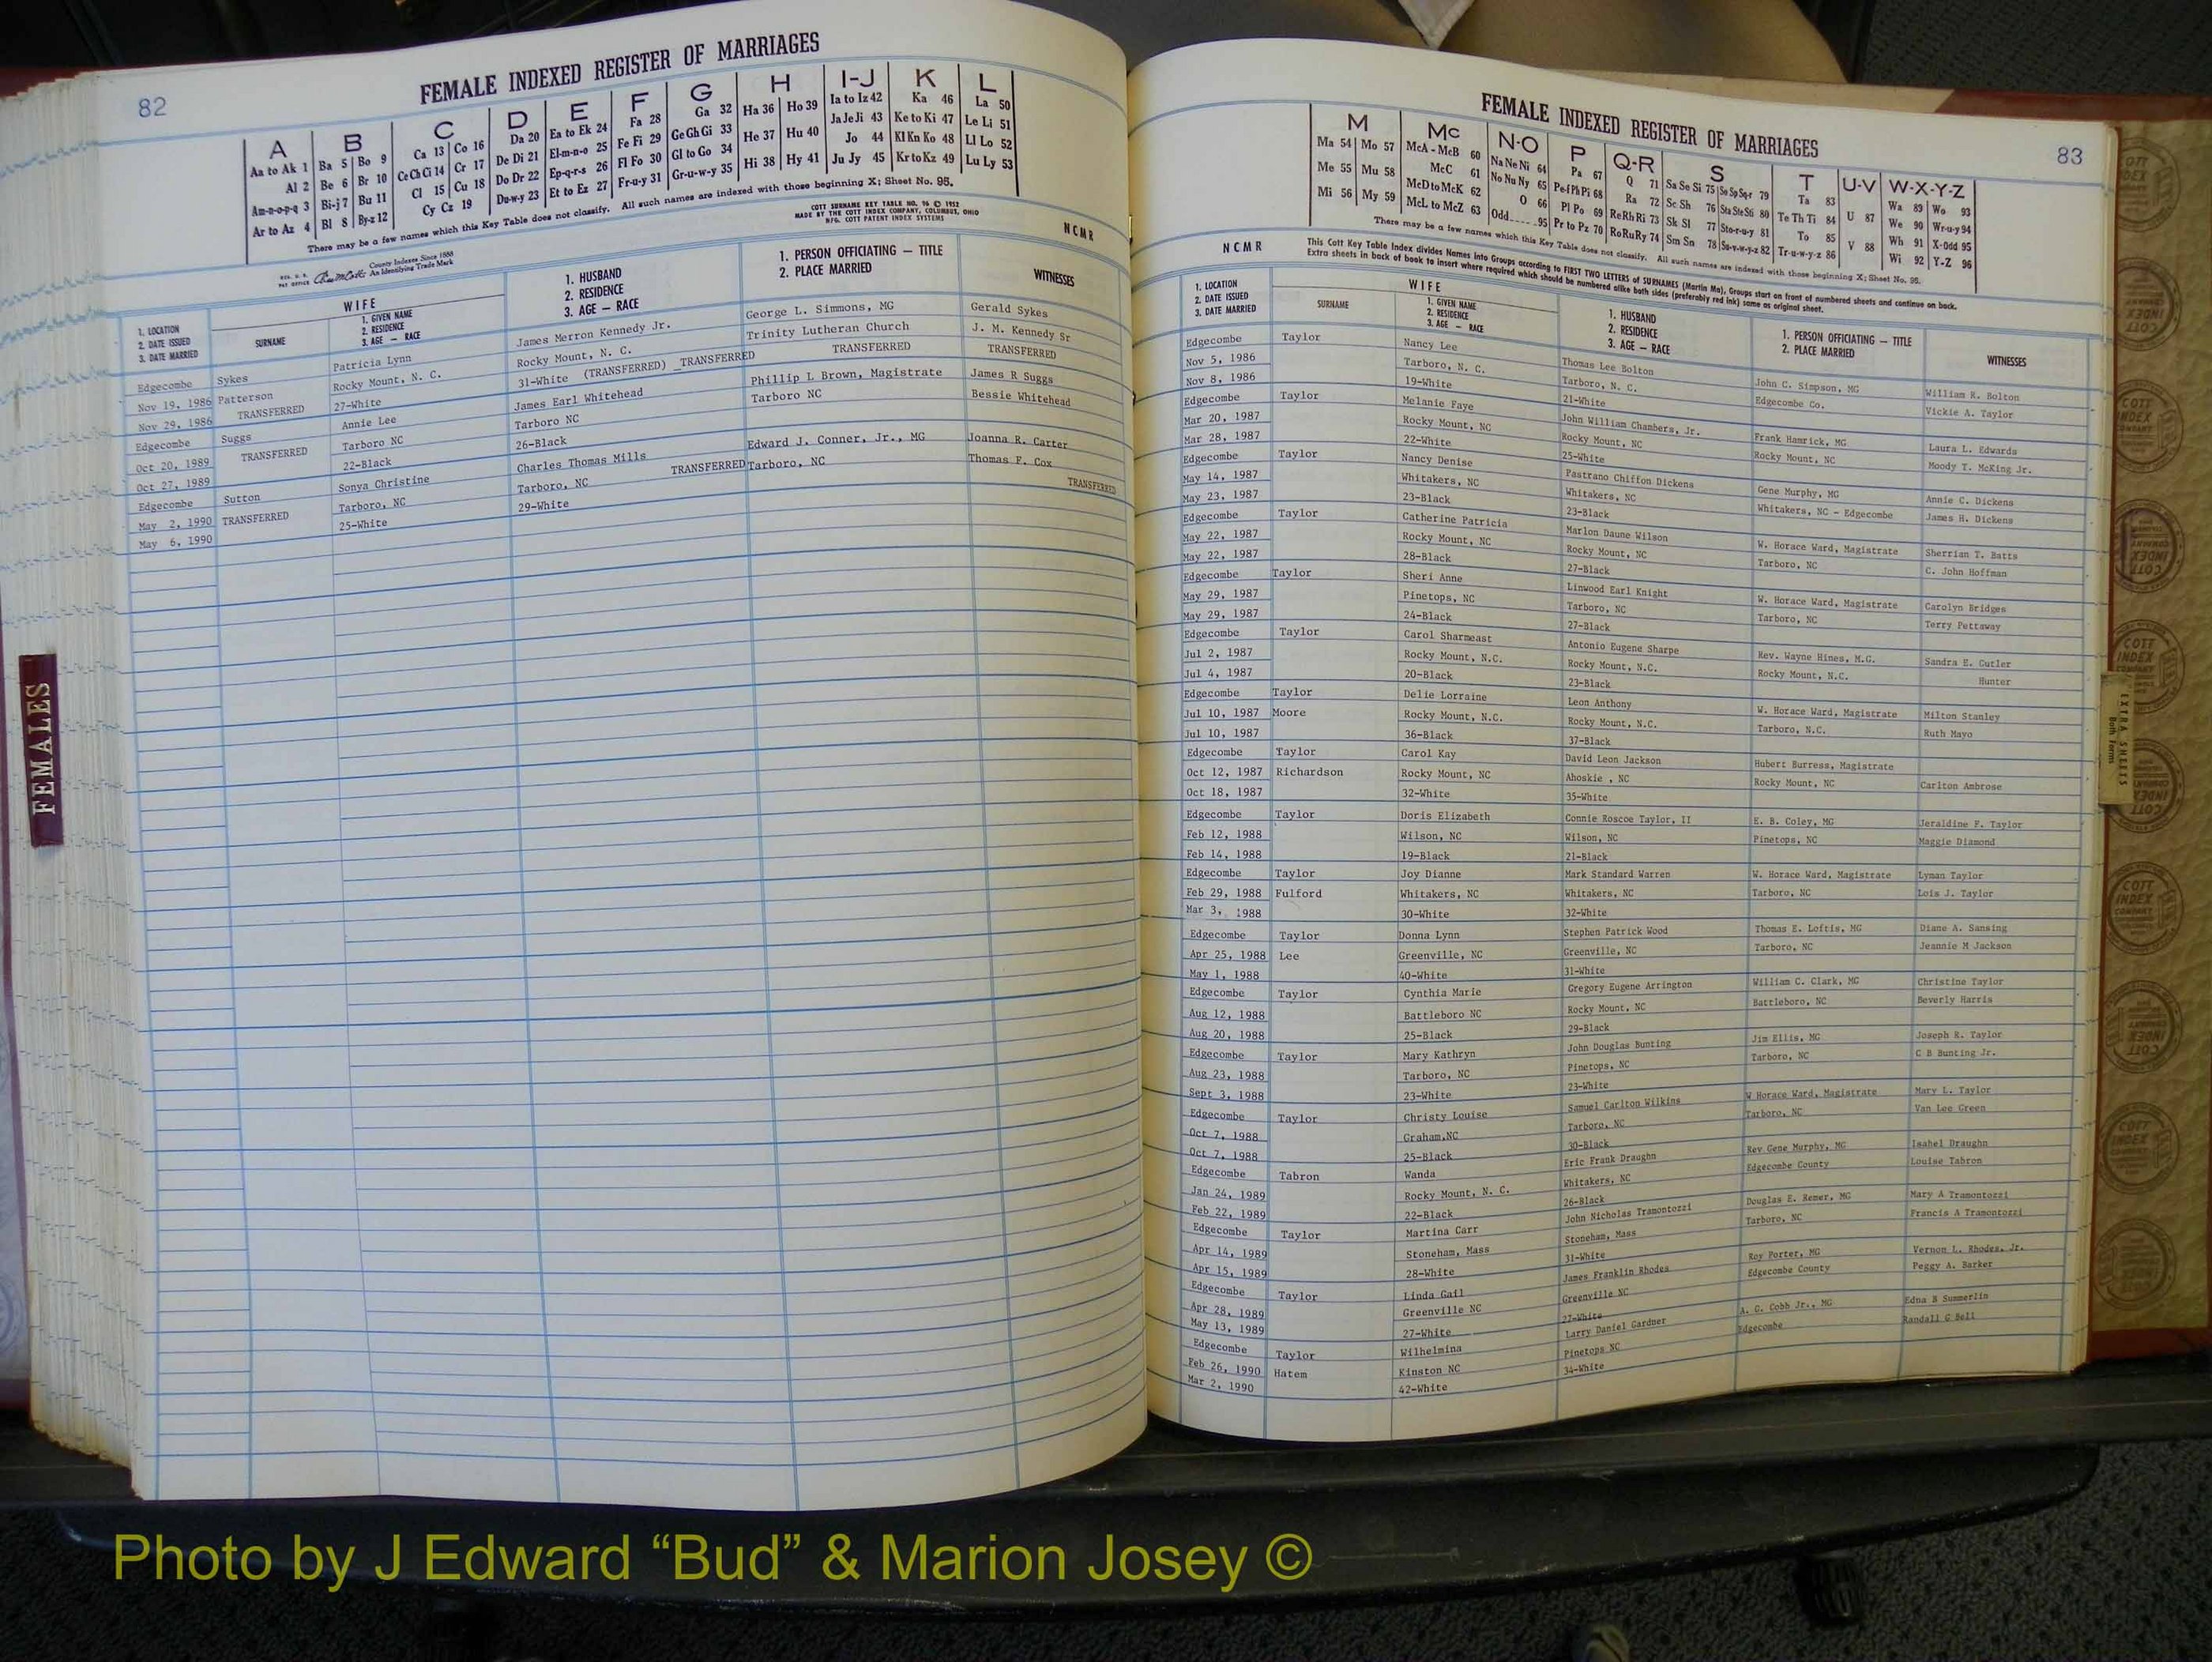 82
FEMALE INDEXED REGISTER OF MARRIAGES
A B C D E F G H I-J K L
Aa to Ak 1 Ba 5 Bo 9 Ca 13 Co 16 Da 20 Ea to Ek 24 Fa 28 Ga 32 Ha 36 Ho 39 Ia to Iz 42 Ka 46 La 50
Al 2 Be 6 Br 10 Ce Ch Ci 14 Cr 17 De Di 21 El-m-n-o 25 Fe Fi 29 Ge Gh Gi 33 He 37 Hu 40 Ja Je Ji 43 Ke to Ki 47 Le Li 51
Am-n-o-p-q 3 Bi-j 7 Bu 11 Cl 15 Cu 18 Do Dr 22 Ep-q-r-s 26 Fl Fo 30 Gl to Go 34 Hi 38 Hy 41 Jo 44 Kl Kn Ko 48 Ll Lo 52
Ar to Az 4 Bl 8 By-z 12 Cy Cz 19 Du-w-y 23 Et to Ez 27 Fr-u-y 31 Gr-u-w-y 35 Ju Jy 45 Kr to Kz 49 Lu Ly 53
There may be a few names which this Key Table does not classify. All such names are indexed with those beginning X; Sheet No. 95.
COTT SURNAME KEY TABLE NO. 96 © 1952
MADE BY THE COTT INDEX COMPANY, COLUMBUS, OHIO
MFG. COTT PATENT INDEX SYSTEMS
NCMR
County Indexes Since 1888
An Identifying Trade Mark
1. LOCATION
2. DATE ISSUED
3. DATE MARRIED
WIFE
SURNAME
1. GIVEN NAME
2. RESIDENCE
3. AGE — RACE
1. HUSBAND
2. RESIDENCE
3. AGE — RACE
1. PERSON OFFICIATING — TITLE
2. PLACE MARRIED
WITNESSES
Edgecombe Sykes Patricia Lynn James Merron Kennedy Jr. George L. Simmons, MG Gerald Sykes
Nov 19, 1986 Patterson Rocky Mount, N. C. Rocky Mount, N. C. Trinity Lutheran Church J. M. Kennedy Sr
Nov 29, 1986 TRANSFERRED 27-White 31-White (TRANSFERRED) TRANSFERRED TRANSFERRED TRANSFERRED
Edgecombe Suggs Annie Lee James Earl Whitehead Phillip L Brown, Magistrate James R Suggs
Oct 20, 1989 TRANSFERRED Tarboro NC Tarboro NC Tarboro NC Bessie Whitehead
Oct 27, 1989 22-Black 26-Black
Edgecombe Sutton Sonya Christine Charles Thomas Mills Edward J. Conner, Jr., MG Joanna R. Carter
May 2, 1990 TRANSFERRED Tarboro, NC Tarboro, NC TRANSFERRED Tarboro, NC Thomas F. Cox
May 6, 1990 25-White 29-White TRANSFERRED
FEMALES
FEMALE INDEXED REGISTER OF MARRIAGES
83
M Mc N-O P Q-R S T U-V W-X-Y-Z
Ma 54 Mo 57 McA - McB 60 Na Ne Ni 64 Pa 67 Q 71 Sa Se Si 75 So Sp Sq-r 79 Ta 83 Wa 89 Wo 93
Me 55 Mu 58 McC 61 No Nu Ny 65 Pe-f Ph Pi 68 Ra 72 Sc Sh 76 Sta Ste Sti 80 Te Th Ti 84 U 87 We 90 Wr-u-y 94
Mi 56 My 59 McD to McK 62 O 66 Pl Po 69 Re Rh Ri 73 Sk Sl 77 Sto-r-u-y 81 To 85 V 88 Wh 91 X-Odd 95
McL to McZ 63 Odd 95 Pr to Pz 70 Ro Ru Ry 74 Sm Sn 78 Su-v-w-y-z 82 Tr-u-w-y-z 86 Wi 92 Y-Z 96
There may be a few names which this Key Table does not classify. All such names are indexed with those beginning X; Sheet No. 95.
NCMR
This Cott Key Table Index divides Names into Groups according to FIRST TWO LETTERS of SURNAMES (Martin Ma), Groups start on front of numbered sheets and continue on back.
Extra sheets in back of book to insert where required which should be numbered alike both sides (preferably red ink) same as original sheet.
1. LOCATION
2. DATE ISSUED
3. DATE MARRIED
WIFE
SURNAME
1. GIVEN NAME
2. RESIDENCE
3. AGE — RACE
1. HUSBAND
2. RESIDENCE
3. AGE — RACE
1. PERSON OFFICIATING — TITLE
2. PLACE MARRIED
WITNESSES
Edgecombe Taylor Nancy Lee Thomas Lee Bolton John C. Simpson, MG William R. Bolton
Nov 5, 1986 Tarboro, N. C. Tarboro, N. C. Edgecombe Co. Vickie A. Taylor
Nov 8, 1986 19-White 21-White
Edgecombe Taylor Melanie Faye John William Chambers, Jr. Frank Hamrick, MG Laura L. Edwards
Mar 20, 1987 Rocky Mount, NC Rocky Mount, NC Rocky Mount, NC Moody T. McKing Jr.
Mar 28, 1987 22-White 25-White
Edgecombe Taylor Nancy Denise Pastrano Chiffon Dickens Gene Murphy, MG Annie C. Dickens
May 14, 1987 Whitakers, NC Whitakers, NC Whitakers, NC - Edgecombe James H. Dickens
May 23, 1987 23-Black 23-Black
Edgecombe Taylor Catherine Patricia Marlon Daune Wilson W. Horace Ward, Magistrate Sherrian T. Batts
May 22, 1987 Rocky Mount, NC Rocky Mount, NC Tarboro, NC C. John Hoffman
May 22, 1987 28-Black 27-Black
Edgecombe Taylor Sheri Anne Linwood Earl Knight W. Horace Ward, Magistrate Carolyn Bridges
May 29, 1987 Pinetops, NC Tarboro, NC Tarboro, NC Terry Pettaway
May 29, 1987 24-Black 27-Black
Edgecombe Taylor Carol Sharmeast Antonio Eugene Sharpe Rev. Wayne Hines, M.G. Sandra E. Cutler
Jul 2, 1987 Rocky Mount, N.C. Rocky Mount, N.C. Rocky Mount, N.C. Hunter
Jul 4, 1987 20-Black 23-Black
Edgecombe Taylor Delie Lorraine Leon Anthony W. Horace Ward, Magistrate Milton Stanley
Jul 10, 1987 Moore Rocky Mount, N.C. Rocky Mount, N.C. Tarboro, N.C. Ruth Mayo
Jul 10, 1987 36-Black 37-Black
Edgecombe Taylor Carol Kay David Leon Jackson Hubert Burress, Magistrate
Oct 12, 1987 Richardson Rocky Mount, NC Ahoskie , NC Rocky Mount, NC Carlton Ambrose
Oct 18, 1987 32-White 35-White
Edgecombe Taylor Doris Elizabeth Connie Roscoe Taylor, II E. B. Coley, MG Jeraldine F. Taylor
Feb 12, 1988 Wilson, NC Wilson, NC Pinetops, NC Maggie Diamond
Feb 14, 1988 19-Black 21-Black
Edgecombe Taylor Joy Dianne Mark Standard Warren W. Horace Ward, Magistrate Lyman Taylor
Feb 29, 1988 Fulford Whitakers, NC Whitakers, NC Tarboro, NC Lois J. Taylor
Mar 3, 1988 30-White 32-White
Edgecombe Taylor Donna Lynn Stephen Patrick Wood Thomas E. Loftis, MG Diane A. Sansing
Apr 25, 1988 Lee Greenville, NC Greenville, NC Tarboro, NC Jeannie M Jackson
May 1, 1988 40-White 31-White
Edgecombe Taylor Cynthia Marie Gregory Eugene Arrington William C. Clark, MG Christine Taylor
Aug 12, 1988 Battleboro NC Rocky Mount, NC Battleboro, NC Beverly Harris
Aug 20, 1988 25-Black 29-Black
Edgecombe Taylor Mary Kathryn John Douglas Bunting Jim Ellis, MG Joseph R. Taylor
Aug 23, 1988 Tarboro, NC Pinetops, NC Tarboro, NC C B Bunting Jr.
Sept 3, 1988 23-White 23-White
Edgecombe Taylor Christy Louise Samuel Carlton Wilkins W Horace Ward, Magistrate Mary L. Taylor
Oct 7, 1988 Graham,NC Tarboro, NC Tarboro, NC Van Lee Green
Oct 7, 1988 25-Black 30-Black
Edgecombe Tabron Wanda Eric Frank Draughn Rev Gene Murphy, MG Isabel Draughn
Jan 24, 1989 Rocky Mount, N. C. Whitakers, NC Edgecombe County Louise Tabron
Feb 22, 1989 22-Black 26-Black
Edgecombe Taylor Martina Carr John Nicholas Tramontozzi Douglas E. Remer, MG Mary A Tramontozzi
Apr 14, 1989 Stoneham, Mass Stoneham, Mass Tarboro, NC Francis A Tramontozzi
Apr 15, 1989 28-White 31-White
Edgecombe Taylor Linda Gail James Franklin Rhodes Roy Porter, MG Vernon L. Rhodes, Jr.
Apr 28, 1989 Greenville NC Greenville NC Edgecombe County Peggy A. Barker
May 13, 1989 27-White 27-White
Edgecombe Taylor Wilhelmina Larry Daniel Gardner A. G. Cobb Jr., MG Edna B Summerlin
Feb 26, 1990 Hatem Kinston NC Pinetops NC Edgecombe Randall G Bell
Mar 2, 1990 42-White 34-White
EXTRA SHEETS
Both Forms
COTT
INDEX
COMPANY
Photo by J Edward “Bud” & Marion Josey ©